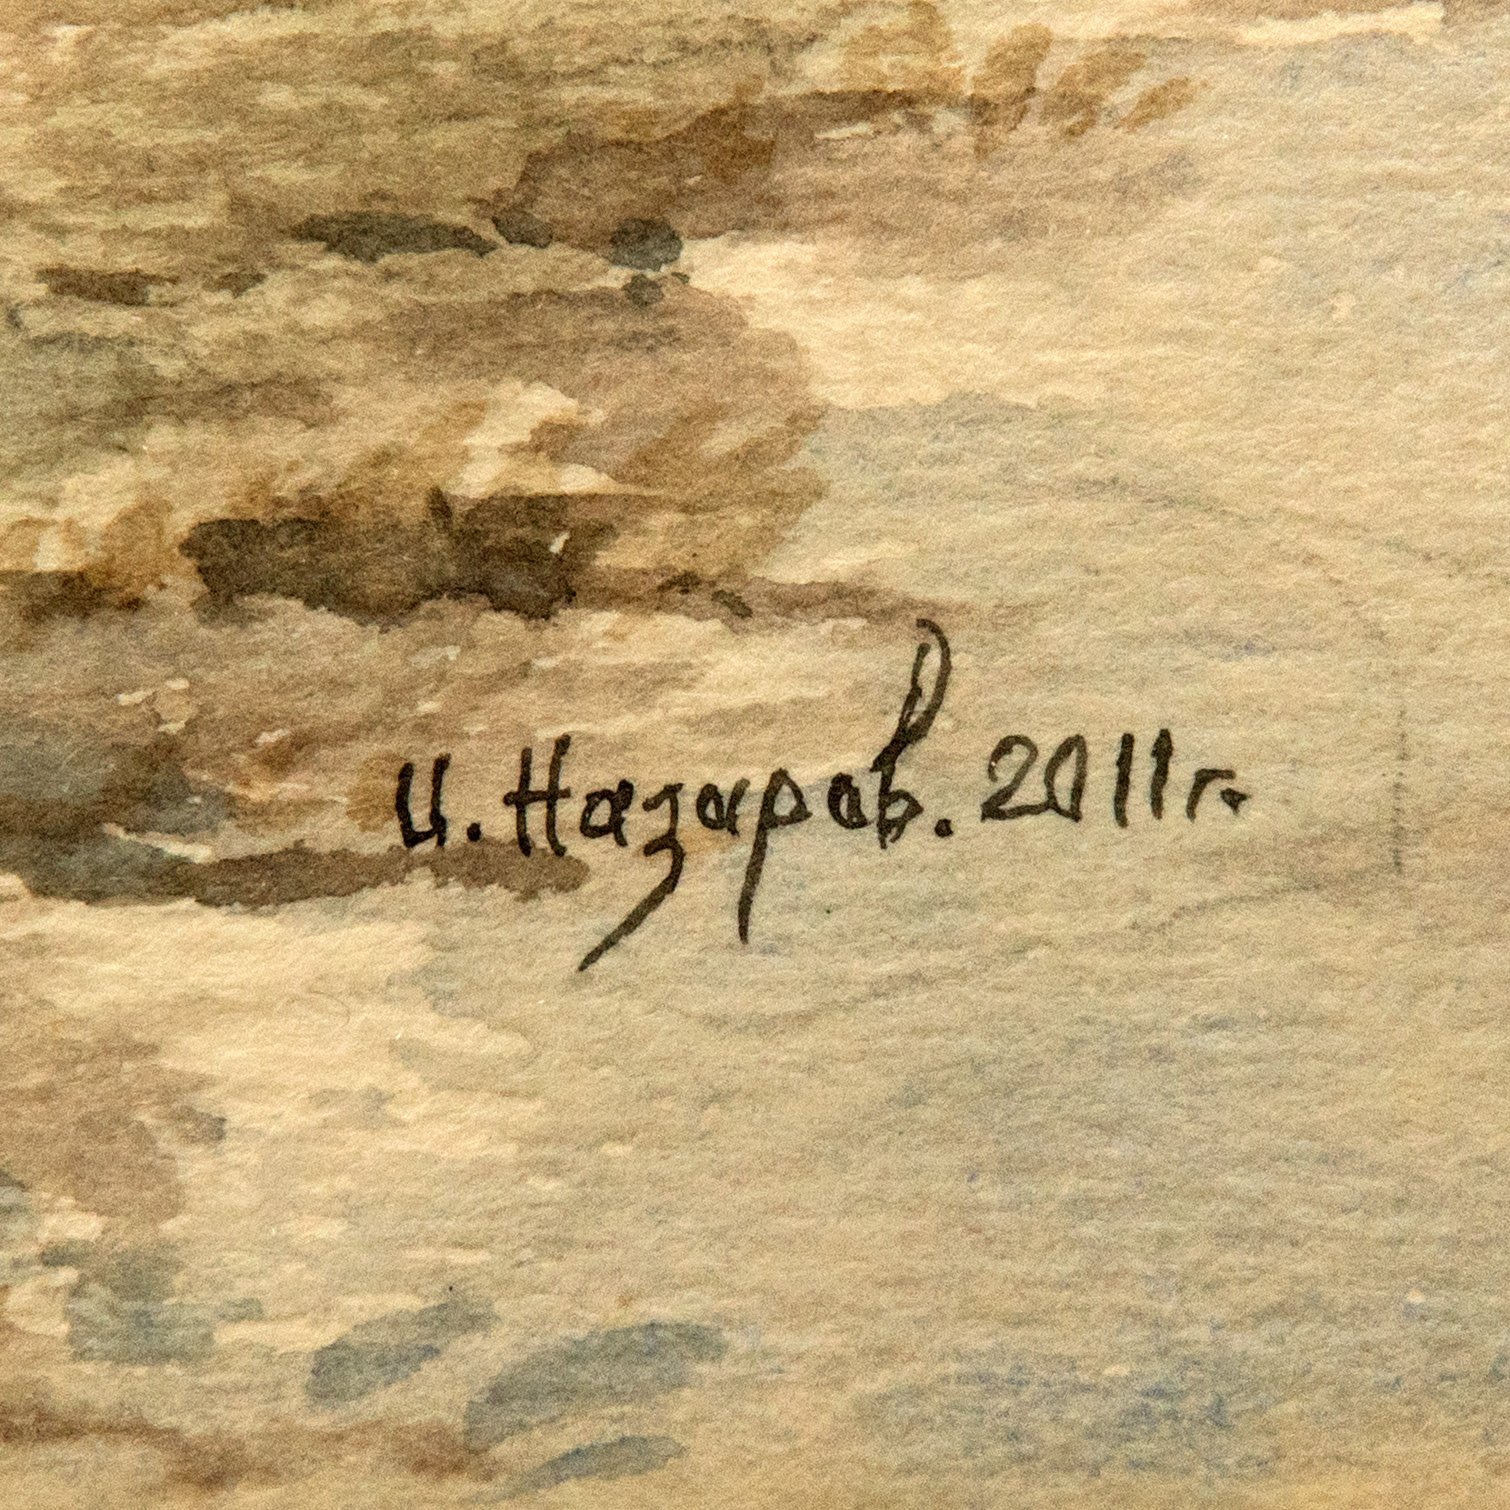 И. Назаров. 2011г.